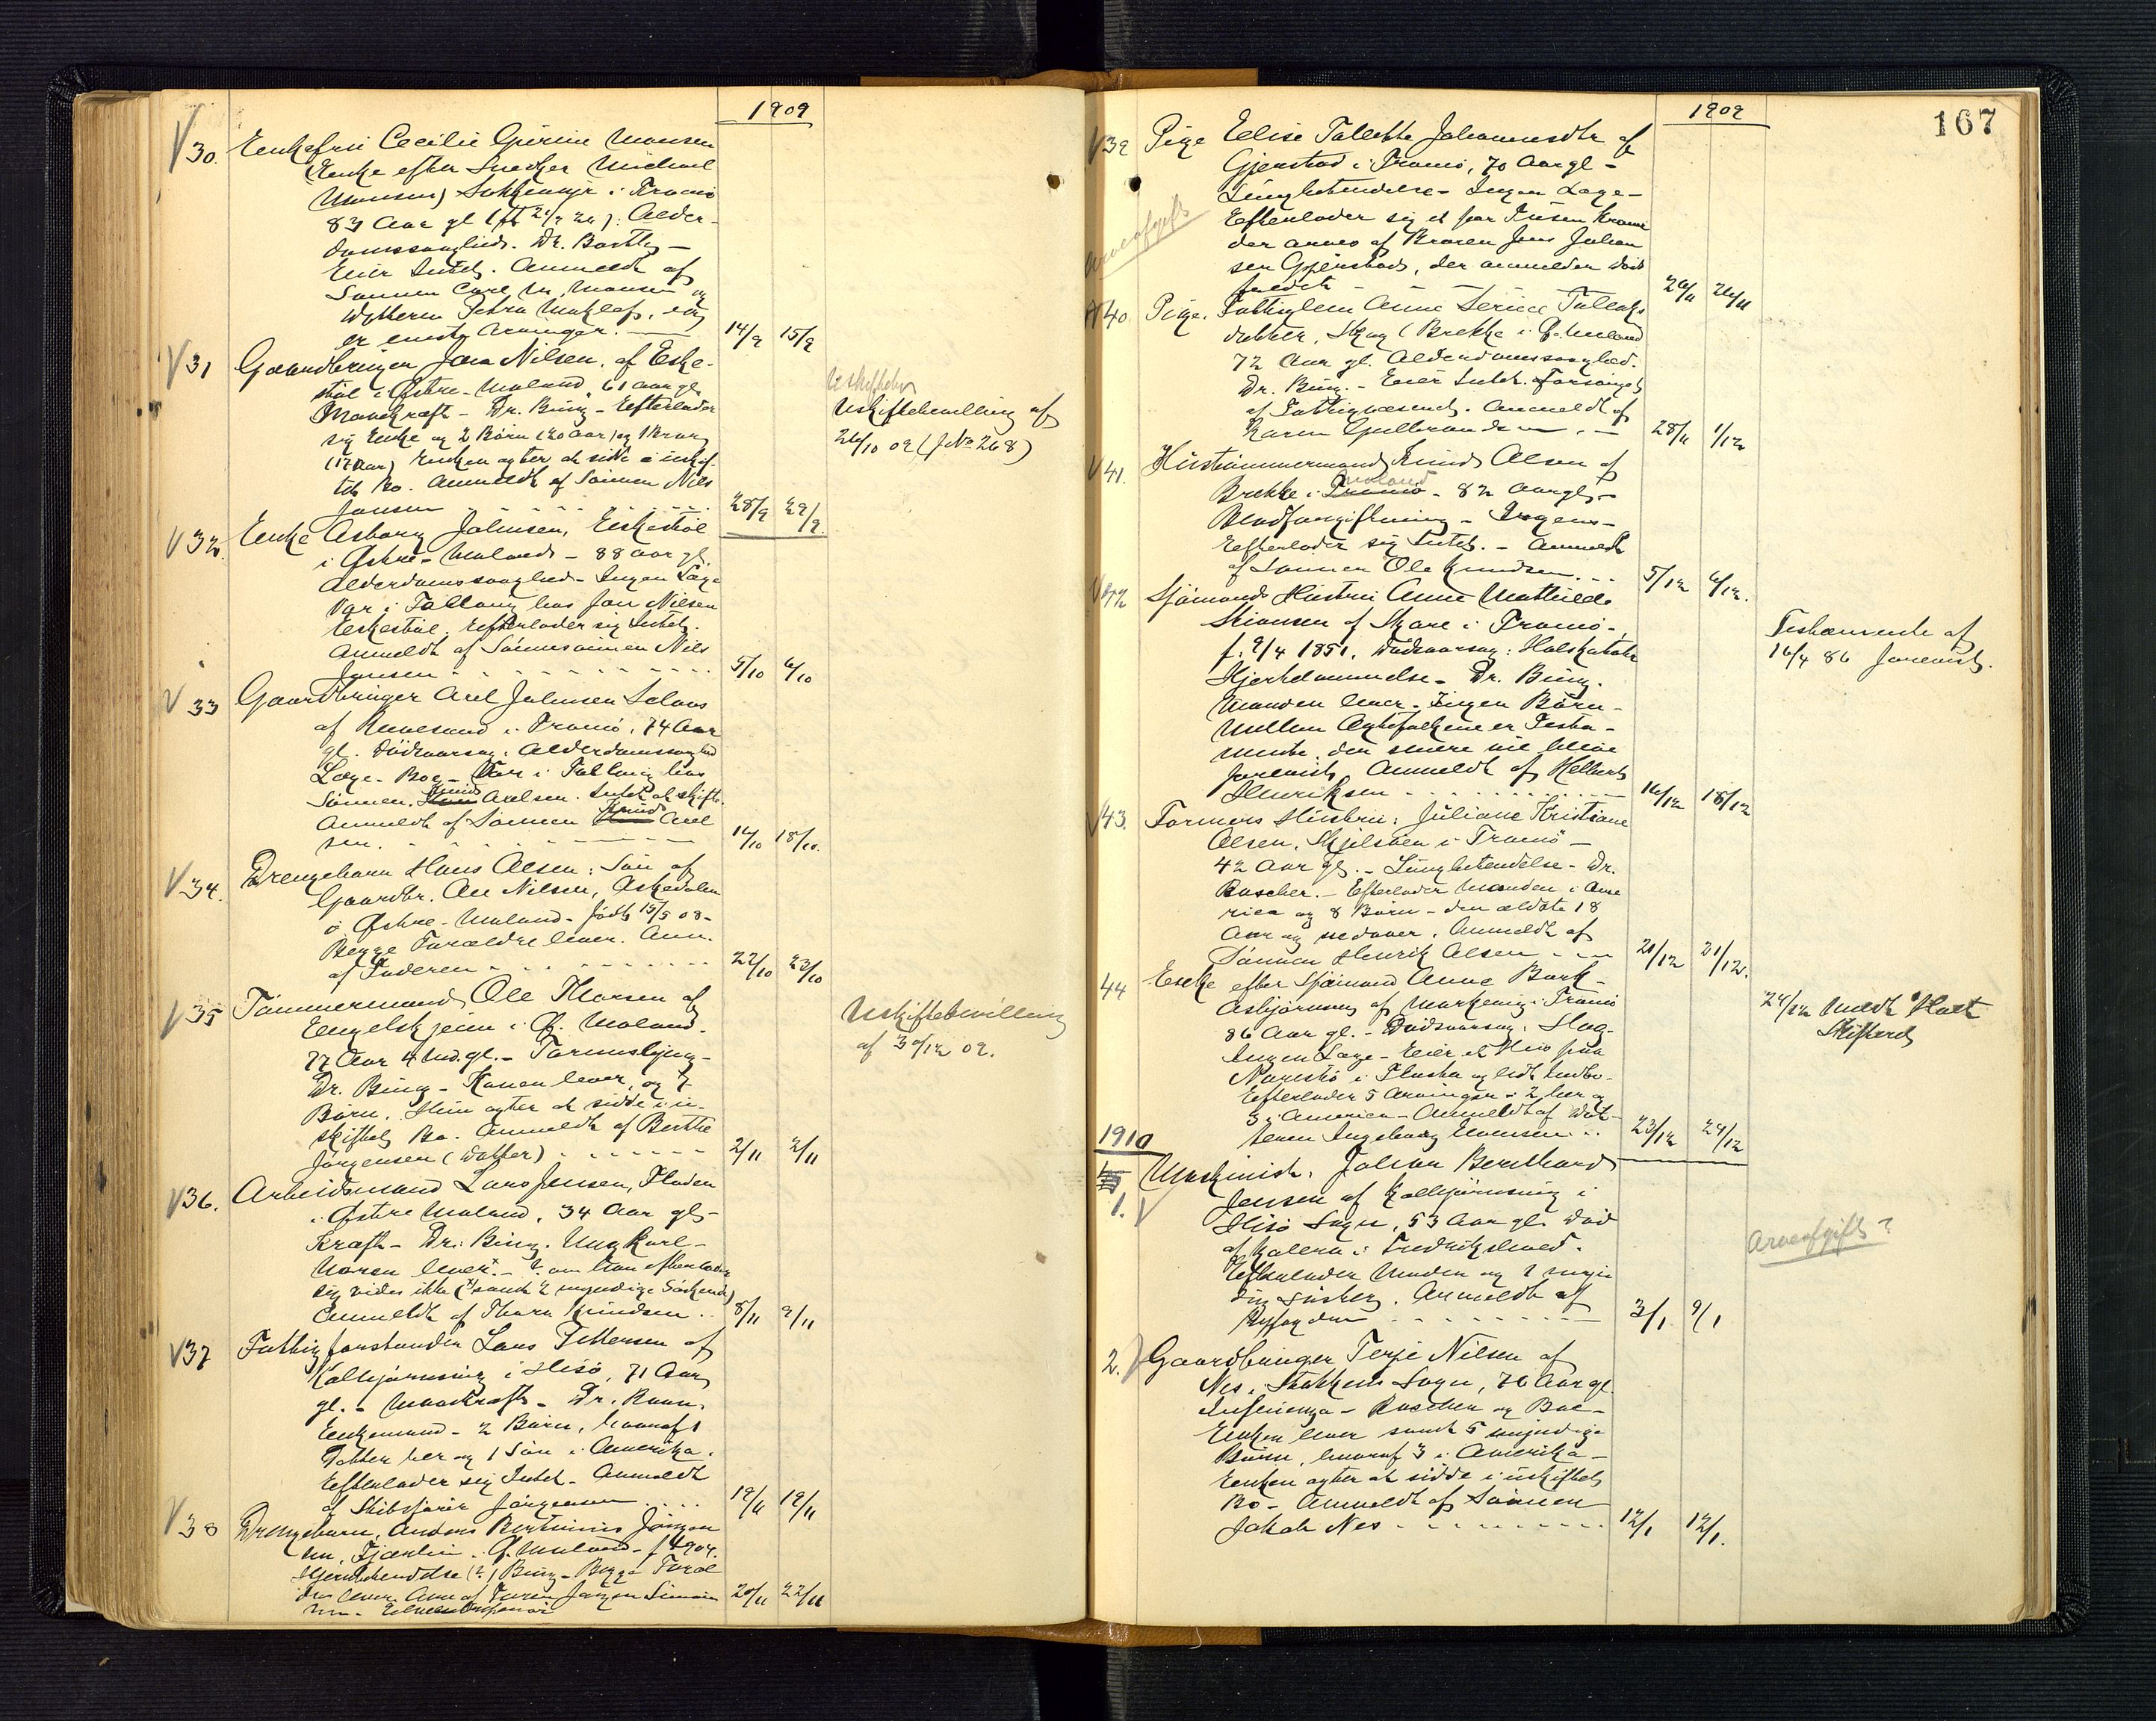 1909
V 30. Enkefru Cecilie Gurine Monsen
(Enke efter Snedker Michael
Monsen) Sukkemyr i Tromø
83 Aar gl Alder-
domssvaghed. Dr. Barth -
Eier Intet. Anmeldt af
Sønnen Carl M. Monsen og
Datteren Petra
er eneste Arvinger. 14/9 15/9
V 31 Gaardbruger Jon Nilsen, af Eske-
støl i Østre-Moland, 61 aar gl
Mavekræft - Dr. Bing - Efterlader
sig Enke og 2 Børn (20 aar) og
(17 Aar) Enken agter at sidde i uskif-
tet Bo. Anmeldt af Sønnen Nils
Jonsen 28/9 29/9.
Uskiftebevilling af
26/10 09 (J No 268)
V 32. Enke Asborg Johnsen, Eskestøl
i Østre-Moland - 88 aar gl.
Alderdomssvaghed - Ingen Læge
Var i Føllaug hos Jon Nilsen
Eskestøl. Efterlader sig Intet.
Anmeldt af Sønnesønnen Nils
Jonsen 5/10 6/10
V 33 Gaardbruger Axel Johnsen
af Revesand i Tromø, 74 Aar
gl. Dødsaarsag: Alderdomssvaghed
Læge - Boe - Var i Føllaug hos
Sønnen Knud Axelsen. Intet at skifte.
Anmeldt af Sønnen Knud Axel
sen. 14/10 18/10.
V 34. Drengebarn Hans Olsen: Søn af
Gaardbr. Ole Nilsen, Askedalen
i Østre-Moland - født 15/5 08 -
Begge Forældre lever. Anm.
af Faderen 22/10 23/10
V 35 Tømmermand Ole Thorsen af
Engelskjøn i Ø. Moland.
77 Aar 4 Md. gl. - Tarmslyng -
Dr. Bing - Konen lever, og 7
Børn. Hun agter at sidde i u-
skiftet Bo. Anmeldt af Berthe
Jørgensen (Datter) 2/11 2/11
Uskiftebevilling
af 30/12 09.
V 36. Arbeidsmand Lars Jensen, Fladen
i Østre Moland, 34 Aar gl -
Kræft - Dr. Bing. Ungkarl -
Moren lever x. - ?: om han efterlader
sig vides ikke (x) samt 2 myndige Søskende)
Anmeldt af Thora Knudsen 8/11 9/11
V 37 Fattigforstander Lars Tellefsen af
Kolbjørnsvig i Hisø, 71 Aar
gl. - Mavekræft - Dr. Ravn.
Enkemand - 2 Børn, hvoraf 1
Datter her og 1 Søn i Amerika.
Efterlader sig Intet - Anmeldt
af Skibsfører Jørgensen 19/11 19/11
V 38 Drengebarn, Anders Bertinius Jørgen
sen, Ø. Moland - f. 1904.
Hjernebetændelse (?) Bing - Begge Foræl
dre lever. Anm af Faren Jørgen Simon
sen. 20/11 22/11
1909
167
V 39 Pige Elise Tallette Johannesdtr af
Gjenstad i Tromø, 70 Aar gl -
Lungebetændelse - Ingen Læge -
Efterlader sig et par Tusen Kroner
der arves af Broren Jens Johan
sen Gjenstad, der anmelder Døds
faldet 24/11 24/11
Arveafgift
V 40 Pige. Fattiglem Anne Serine Tallaks
datter, Skog (Brekke i Ø. Moland
72 Aar gl. Alderdomssvaghed.
Dr. Bing. - Eier Intet. Forsørget
af Fattigvæsenet. Anmeldt af
Karen Gulbrandsen 28/11 1/12
V 41. Hustømmermand Knud Olsen af
Brekke i Tromø Moland - 82 Aar gl -
Blodforgiftning - Ingen -
Efterlader sig Intet. - Anmeldt
af Sønnen Ole Knudsen 5/12 6/12.
V 42 Sjømands Hustru Anne Mathilde
af Skare i Tromø -
f. 9/4 1851. Dødsaarsag: Halskatarh
Hjertelammelse - Dr. Bing.
Manden lever - Ingen Børn -
Mellem Ægtefolkene er Testa-
mente, der senere vil blive
forevist. Anmeldt af Helbert
Henriksen 16/12 18/12
Testamente af
16/4 86 forevist.
V 43. Formers Hustru: Juliane Kristiane
Olsen, Skjelsøen i Tromø -
42 Aar gl. - Lungebetændelse - Dr.
Buscher. - Efterlader Manden i Ame
rica og 8 Børn - den ældste 18
Aar og nedover. Anmeldt af
Sønnen Henrik Olsen 21/12 21/12.
44 Enke efter Sjømand Anne Bork
Asbjørnsen af i Tromø
86 Aar gl. - Dødsaarsag: Slag -
Ingen Læge - Eier et Hus paa
Narestø i Flosta og lidt Indbo -
Efterlader 5 Arvinger - 2 her og
3 i America - Anmeldt af Dat-
teren Ingeborg Evensen 23/12 24/12
24/12 Medt Holt
Skifteret
1910
1. V Maskinist. Johan Bernhard
Jensen af Kolbjørnsvig i
Hisø Sogn, 53 Aar gl. Død
af Kolera i
Efterlader Moder og 1 myn
dig Søster. Anmeldt af
3/1 9/1
Arveafgift?
2. V Gaardbruger Terje Nilsen af
Nes, Stokken Sogn, 76 Aar gl.
Influenza - Buscher og Boe -
Enken lever samt 5 myndige
Børn, hvoraf 3 i Amerika -
Enken agter at sidde i uskiftet
Bo - Anmeldt af Sønnen
Jakob Nes 12/1 12/1.